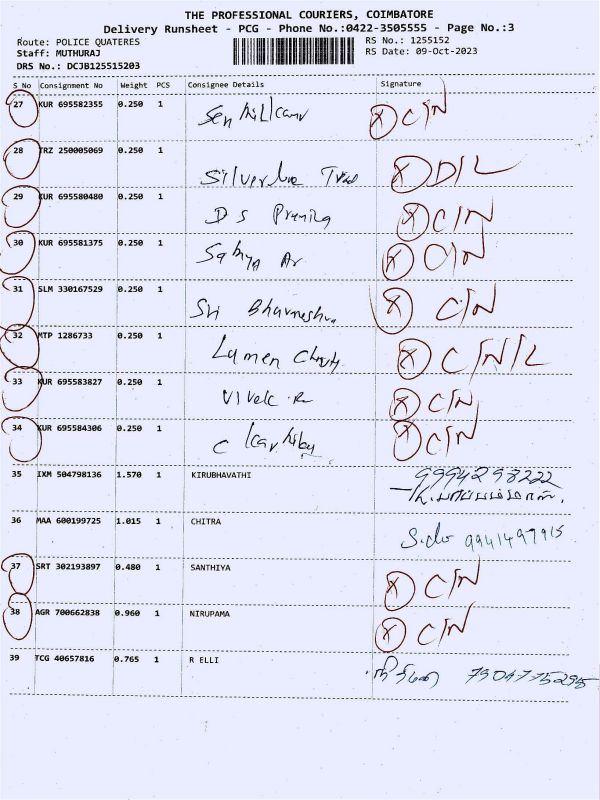 THE PROFESSIONAL COURIERS, COIMBATORE
Delivery Runsheet - PCG - Phone No.:0422-3505555 - Page No.:3
Route: POLICE QUATERES
RS No.: 1255152
Staff: MUTHURAJ
RS Date: 09-Oct-2023
DRS No.: DCJB125515203
S No Consignment No Weight PCS Consignee Details Signature
27 KUR 695582355 0.250 1 C/N
28 TRZ 250005069 0.250 1 D/L
29 KUR 695580480 0.250 1 D S C/N
30 KUR 695581375 0.250 1 C/N
31 SLM 330167529 0.250 1 Sri C/N
32 MTP 1286733 0.250 1 Lumen C/N/L
33 KUR 695583827 0.250 1 C/N
34 KUR 695584306 0.250 1 C C/N
35 IXM 504798136 1.570 1 KIRUBHAVATHI 9994298222
36 MAA 600199725 1.015 1 CHITRA 9941497915
37 SRT 302193897 0.480 1 SANTHIYA C/N
38 AGR 700662838 0.960 1 NIRUPAMA C/N
39 TCG 40657816 0.765 1 R ELLI